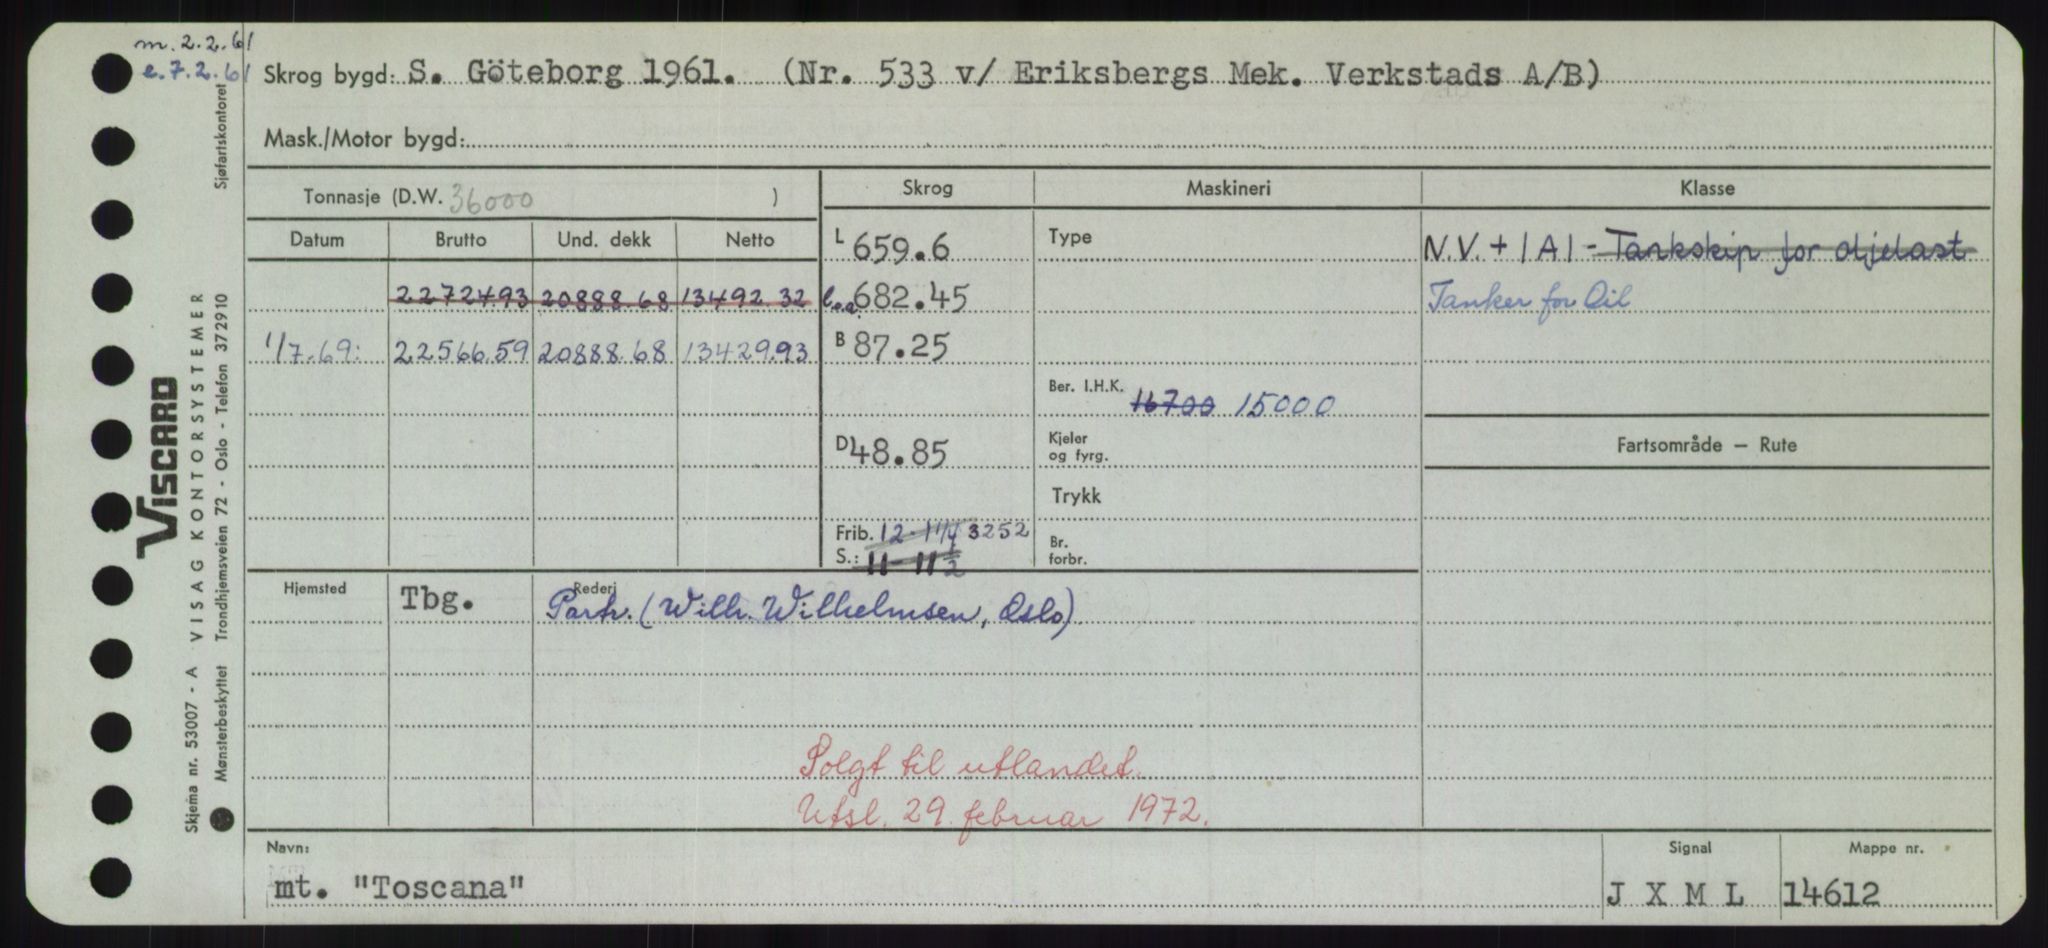 m. 2.2.61
e. 7.2.61
Skrog bygd: S. Göteborg 1961. (Nr. 533 v/ Eriksbergs Mek. Verkstads A/B)
Mask./Motor bygd:
Tonnasje (D.W. 36000 )
Skrog Maskineri Klasse
Datum Brutto Und. dekk Netto
L 659.6
Type
N.V. + 1A1 - Tankskip for oljelast
22724.93 20888.68 13492.32
l.a. 682.45
Tanker for Oil
1/7.69: 22566.59 20888.68 13429.93
B 87.25
Ber. I.H.K. 16700 15000
D 48.85
Kjeler
og fyrg.
Fartsområde — Rute
Trykk
Frib. 12-11 1/4 3252
S.: 11-11 1/2
Br.
forbr.
Hjemsted Tbg.
Rederi
Partr. (Wilh. Wilhelmsen, Oslo)
Solgt til utlandet.
Utsl. 29. februar 1972.
Navn: Signal Mappe nr.
mt. "Toscana" J X M L 14612
VISCARD
Skjema nr. 53007 - A VISAG KONTORSYSTEMER
Mønsterbeskyttet Trondhjemsveien 72 - Oslo - Telefon 372910 Sjøfartskontoret